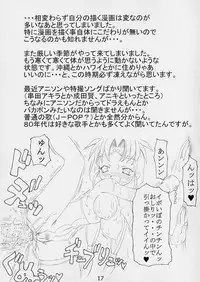 ・・・相変わらず自分の描く漫画は変なのが
多いなあと思う次第であります。
特に漫画を描く事自体にこだわりが無いので
こうなるのかも知れませんが・・・
また厳しい季節がやって来てしまいました。
もう寒くて寒くて体が思うように動かないかな
と思います。沖縄とかハワイとかに住めりゃ
いいのに・・・と、この時期必ず凄まれます。
最近アニソンや特撮ソングばかり聞いてます。
(串田アキラとか成田賢、アニキといったところ)
ちなみにアニソンだからってドラえもんとか
バカボンみたいなのは聞きませんが・・・
普通の歌(J-POP?)とか全然分からん。
80年代は好きな歌手とかも多くてよく聞いてたんですが。
ゆんッ
あンンン
んッはッ♥
イボいぼのチンチンッ
おしりッ・・の中で
引っ掛かってイイッ♥
17